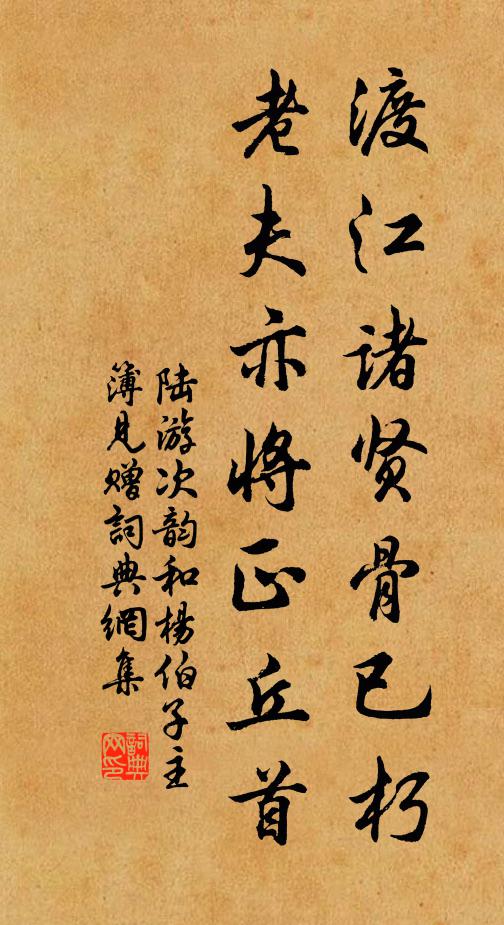 渡江诸贤骨已朽
老夫亦将正丘首
陆游次韵和杨伯子主
簿見赠詞典網集
詞典
网印